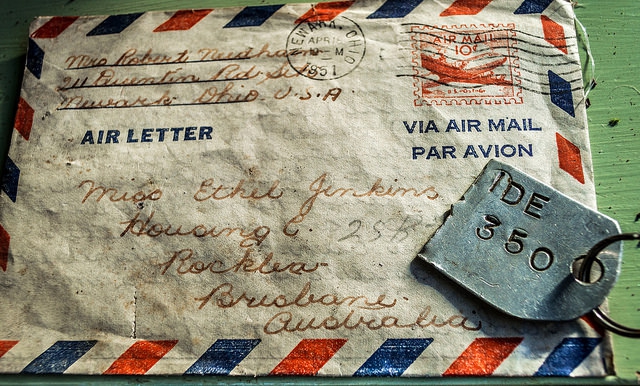 Mrs Robert
Quentin Rd.
Newark Ohio U.S.A
NEWARK, OHIO
APR
M
1951
AIR MAIL
10¢
AIR LETTER
VIA AIR MAIL
PAR AVION
Miss Ethel Jenkins
Housing C.
Rocklea
Brisbane
Australia
IDE
350